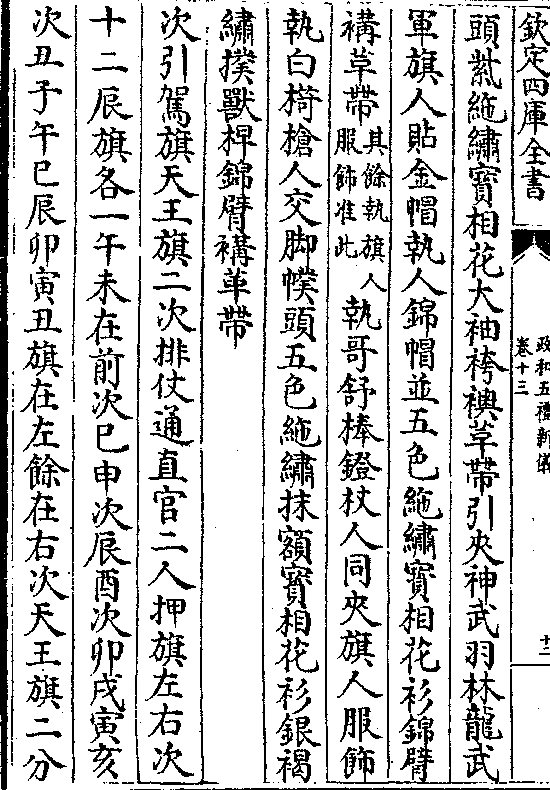 欽定四庫全書
政和五禮新儀
卷十三
十二
頭紫絁繡寳相花大袖袴襖革帶引夾神武羽林龍武
軍旗人貼金帽執人錦帽並五色絁繡寳相花衫錦臂
褠革帶其餘執旗人服飾准此執哥舒棒鐙杖人同夾旗人服飾
執白椅槍人交脚幞頭五色絁繡抹額寳相花衫銀褐
繡撲獸桿錦臂褠革帶
次引駕旗天王旗二次排仗通直官二人押旗左右次
十二辰旗各一午未在前次巳申次辰酉次卯戌寅亥
次丑子午巳辰卯寅丑旗在左餘在右次天王旗二分